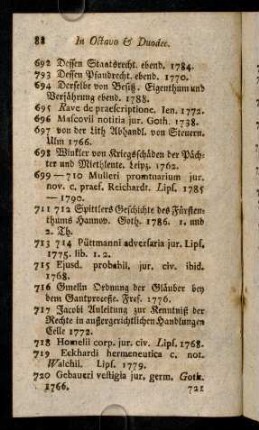 88 In Octavo & Duodec.
692 Dessen Staatsrecht. ebend. 1784.
793 Dessen Pfandrecht. ebend. 1770.
694 Derselbe von Besitz. Eigenthum und
Verjährung ebend. 1788.
695 Rave de praescriptione. Ien. 1772.
696 Mascovii notitia jur. Goth. 1738.
697 von der Lith Abhandl. von Steuern.
Ulm 1766.
698 Winkler von Kriegsschäden der Päch-
ter und Miethleute. Leipz. 1762.
699—710 Mulleri promtuarium jur.
nov. c. praef. Reichardt. Lips. 1785
— 1790.
711 712 Spittlers Geschichte des Fürsten-
thums Hannov. Goth. 1786. 1. und
2. Th.
713 714 Püttmanni adversaria jur. Lips.
1775. lib. 1. 2.
715 Ejusd. probabil. jur. civ. ibid.
1768.
716 Gmelin Ordnung der Gläuber bey
dem Gantprocesse. Frcf. 1776.
717 Jacobi Anleitung zur Kenntniß der
Rechte in aussergerichtlichen Handlungen
Celle 1772.
718 Homelii corp. jur. civ. Lips. 1768.
719 Eckhardi hermeneutica c. not.
Walchii. Lips. 1779.
720 Gebaueri vestigia jur. germ. Goth.
1766.
721